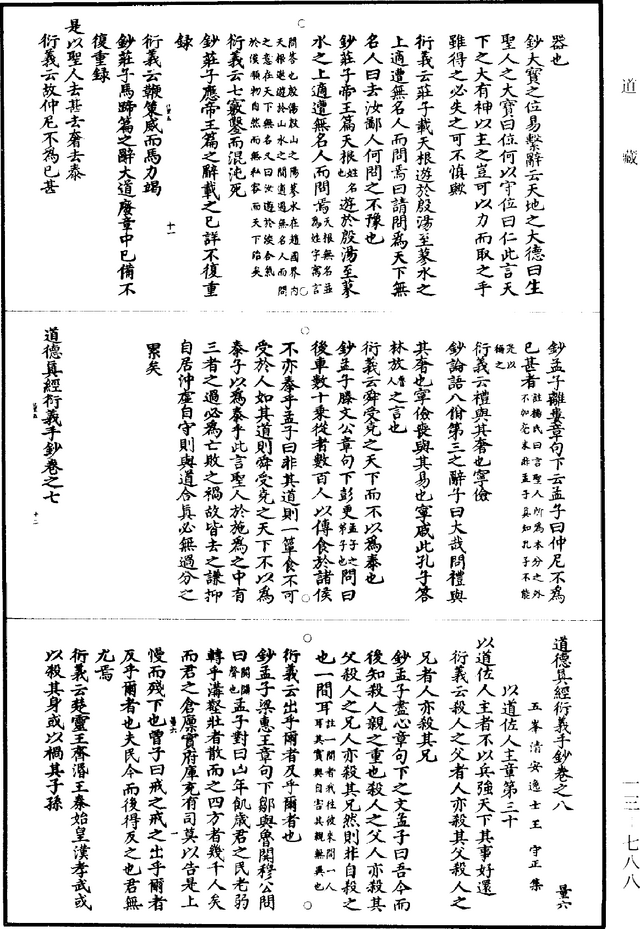 道藏
器也
鈔大寶之位易繫辭云天地之大德曰生
聖人之大寶曰位何以守位曰仁此言天
下之大有神以主之豈可以力而取之乎
雖得之必失之可不慎歟
衍義云莊子載天根遊於殷湯至蓼水之
上適遭無名人而問焉曰請問為天下無
名人曰去汝鄙人何問之不豫也
鈔莊子帝王篇天根姓名遊於殷湯至蓼
水之上適遭無名人而問焉天根無名並為姓字寓言
問答也殷湯殷山之陽蓼水在趙國界內
天根遊於山水之間適遇無名人而問
之意在天下無名又曰汝遊於淡合氣
於漠順物自然而無私容而天下治矣
衍義云七竅鑿而混沌死
鈔莊子應帝王篇之辭載之已詳不復重
錄
衍義云鞭策威而馬力竭
鈔莊子馬蹄篇之辭大道廢章中已備不
復重錄
十一
是以聖人去甚去奢去泰
衍義云故仲尼不為已甚
鈔孟子離婁章句下云孟子曰仲尼不為
已甚者註楊氏曰言聖人所為本分之外不加毫末非孟子真知孔子不能
以是稱之
衍義云禮與其奢也寧儉
鈔論語八佾第三之辭子曰大哉問禮與
其奢也寧儉喪與其易也寧戚此孔子答
林放魯人之言也
衍義云舜受堯之天下而不以為泰也
鈔孟子滕文公章句下彭更孟子之弟子也問曰
後車數十乘從者數百人以傳食於諸侯
不亦泰乎孟子曰非其道則一簞食不可
受於人如其道則舜受堯之天下不以為
泰子以為泰乎此言聖人於施為之中有
三者之過必為亡敗之禍故皆去之謙抑
自居沖虛自守則與道合真必無過分之
累矣
道德真經衍義手鈔卷之七
十二
道德真經衍義手鈔卷之八
量六
五峯清安逸士王守正集
以道佐人主章第三十
以道佐人主者不以兵強天下其事好還
衍義云殺人之父者人亦殺其父殺人之
兄者人亦殺其兄
鈔孟子盡心章句下之文孟子曰吾今而
後知殺人親之重也殺人之父人亦殺其
父殺人之兄人亦殺其兄然則非自殺之
也一間耳註一間者我往彼來間一人耳其實與自害其親無異也
衍義云出乎爾者反乎爾者也
鈔孟子梁惠王章句下鄒與魯鬨穆公問
曰鬨鬭聲也孟子對曰凶年飢歲君之民老弱
轉乎溝壑壯者散而之四方者幾千人矣
而君之倉廩實府庫充有司莫以告是上
慢而殘下也曾子曰戒之戒之出乎爾者
反乎爾者也夫民今而後得反之也君無
尤焉
量六
一
衍義云楚靈王齊湣王秦始皇漢孝武或
以殺其身或以禍其子孫
一三·七八八